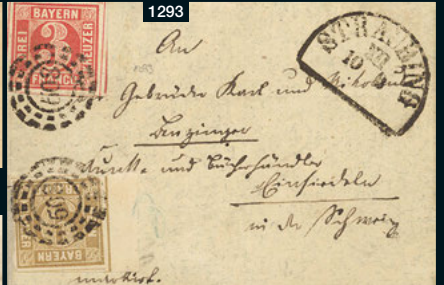 1293
BAYERN
3
DREI
KREUZER
FRANCO
STRAUBING
10
An
Gebrüder Karl und Nikolaus
Benzinger
Kunst- und Buchhändler
Einsiedeln
in der Schweiz
BAYERN